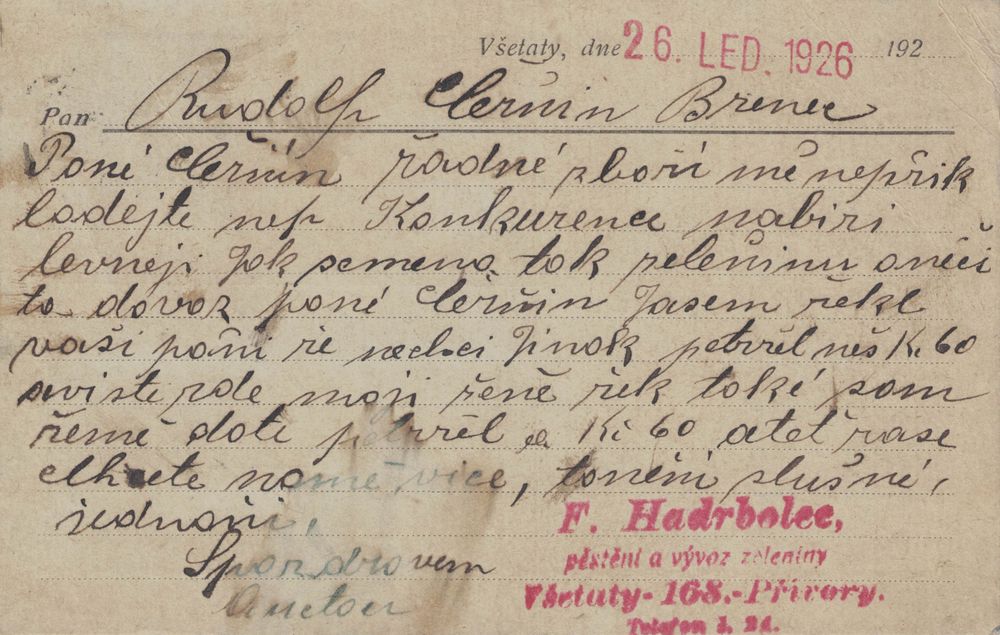 Všetaty, dne 26. LED. 1926 192
Pan Rudolf Černín Březnec
Pané Černín řadné zboží mě nepřik
ladejte nep Konkurence nabiri
levneji Jak semena tak zeleninu aneči
to dovoz pané Černin Jasem řekl
vaši pani že nechci Jinak petržel neš Kč 60
aviste zde moji ženě řek také sam
řemě date petržel za Kč 60 a teť zase
chcete na mě vice, toneni slušné,
jednani,
Spozdravem
F. Hadrbolec,
pěstění a vývoz zeleniny
Všetaty-168.-Přívory.
Telefon č. 24.